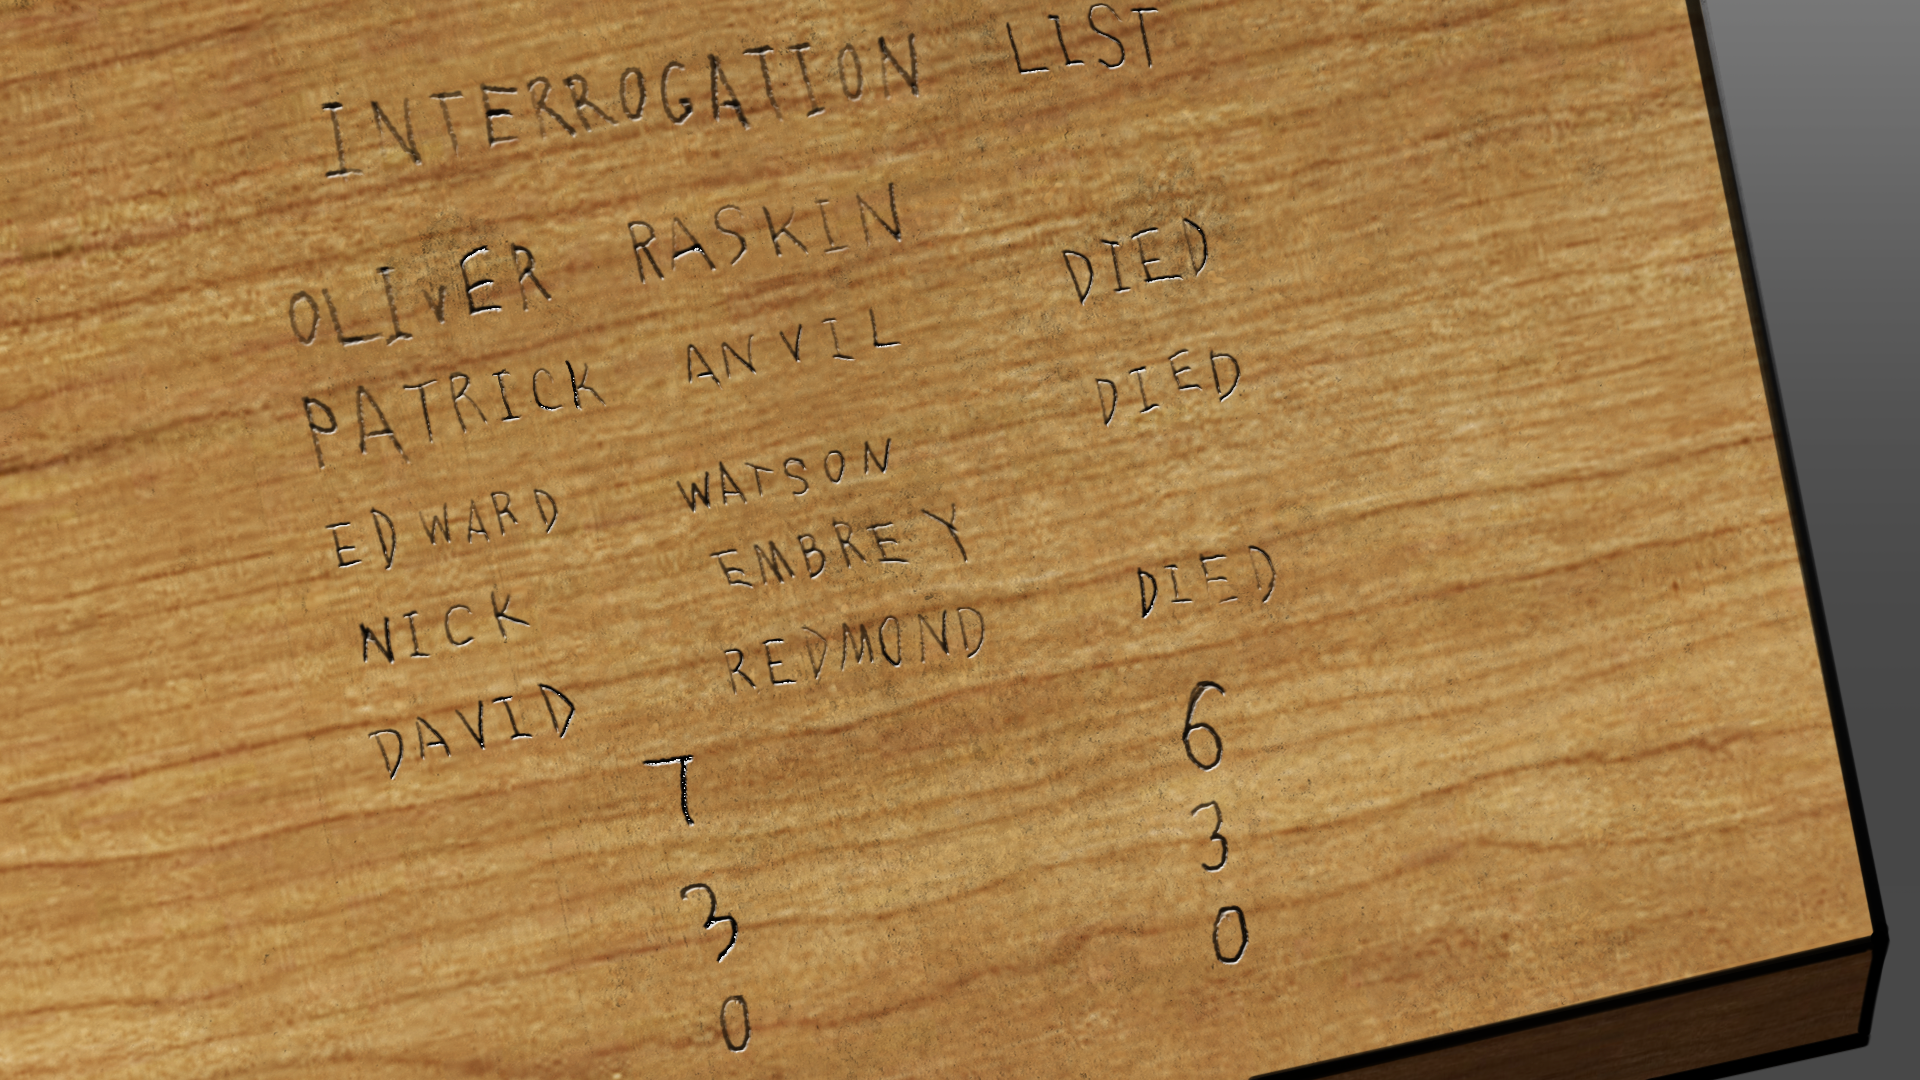 INTERROGATION LIST
OLIVER RASKIN
PATRICK ANVIL DIED
EDWARD WATSON DIED
NICK EMBREY
DAVID REDMOND DIED
7 6
3 3
0 0